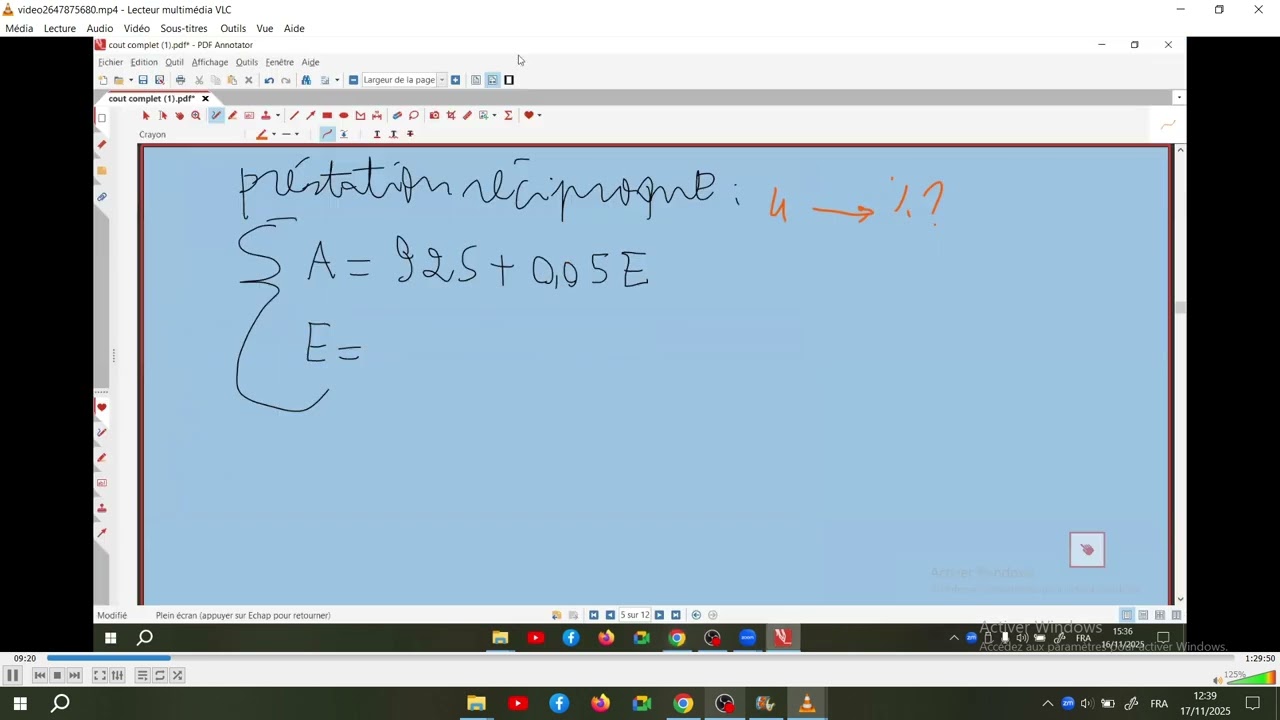 video2647875680.mp4 - Lecteur multimédia VLC
Média Lecture Audio Vidéo Sous-titres Outils Vue Aide
cout complet (1).pdf* - PDF Annotator
Fichier Edition Outil Affichage Outils Fenêtre Aide
Largeur de la page
cout complet (1).pdf*
Crayon
préstation réciproque : 4 → %?
A = 925 + 0,05 E
E =
Activer Windows
Modifié Plein écran (appuyer sur Echap pour retourner) 5 sur 12
Activer Windows
Accédez aux paramètres pour activer Windows.
FRA 15:36
16/11/2025
09:20 1:29:50
125%
FRA 12:39
17/11/2025